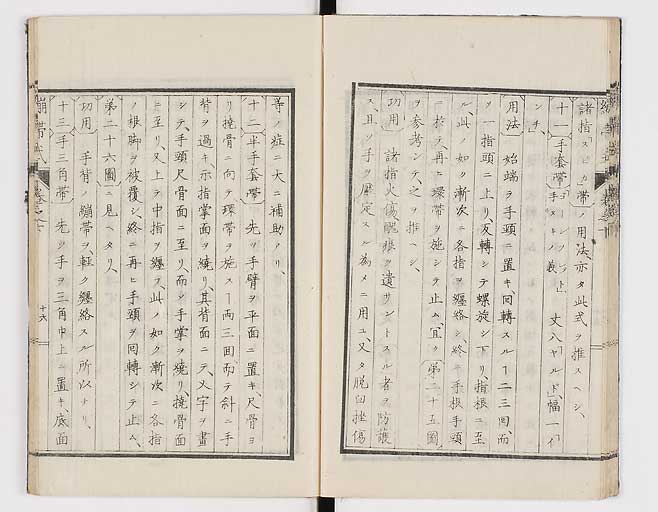 諸指「スピカ」帯ノ用法、亦タ此式ヲ推スヘシ、
十一手套帯 手スキノ義 丈八ヤルド、幅一イ
ンチ、
用法 始端ヲ手頸ニ置キ、回轉スルヿ二三回、而
ヲ一指頭ニ上リ、反轉シテ螺旋シ下リ、指根ニ至
ル、此ノ如ク漸次ニ各指ヲ纏絡シ、終リ手根手頸
ニ於テ再ヒ環帯ヲ施シテ止ム、宜ク第二十五圖
ヲ参考シテ之ヲ推スヘシ、
功用 諸指火傷、醜痕ヲ遺サントスル者ヲ防護
ス、且ツ手ヲ固定スル為メニ用ユ、又タ脱臼挫傷
等ノ症ニ大ニ補助アリ、
十二半手套帯 先ツ手臂ヲ平面ニ置キ、尺骨ヨ
リ撓骨ニ向テ環帯ヲ施スヿ両三回、而テ斜ニ手
背ヲ過キ、示指掌面ヲ繞リ、其背面ニテ、乂字ヲ畫
シテ、手頸尺骨面ニ至リ、而シテ手掌ヲ繞リ撓骨面
ニ至リ、又上テ中指ヲ纏ヒ、此ノ如ク漸次ニ各指
ノ根脚ヲ被覆シ、終ニ再ヒ手頸ヲ回轉シテ止ム、
第二十六圖ニ見ヘタリ、
功用 手背ノ繃帯ヲ、軽ク纏絡スル所以ナリ、
十三手三角帯 先ツ手ヲ三角巾上ニ置キ、底面
繃帯式 巻之上
十六